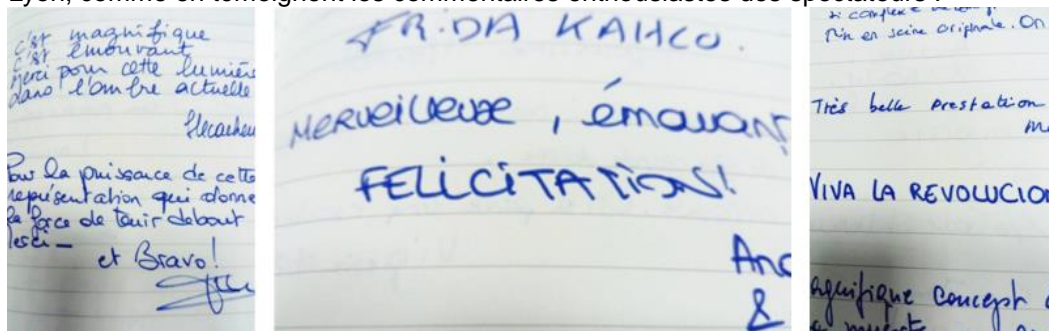 Lyon, comme en témoignent les commentaires enthousiastes des spectateurs :
C'est magnifique
C'est émouvant
Merci pour cette lumière
dans l'ombre actuelle
Pour la puissance de cette
représentation qui donne
la force de tenir debout
Merci –
et Bravo!
FRIDA KAHLO.
MERVEILLEUSE, émouvant
FELICITATION!
&
originale. On
Très belle prestation
VIVA LA REVOLUCION
Magnifique concept